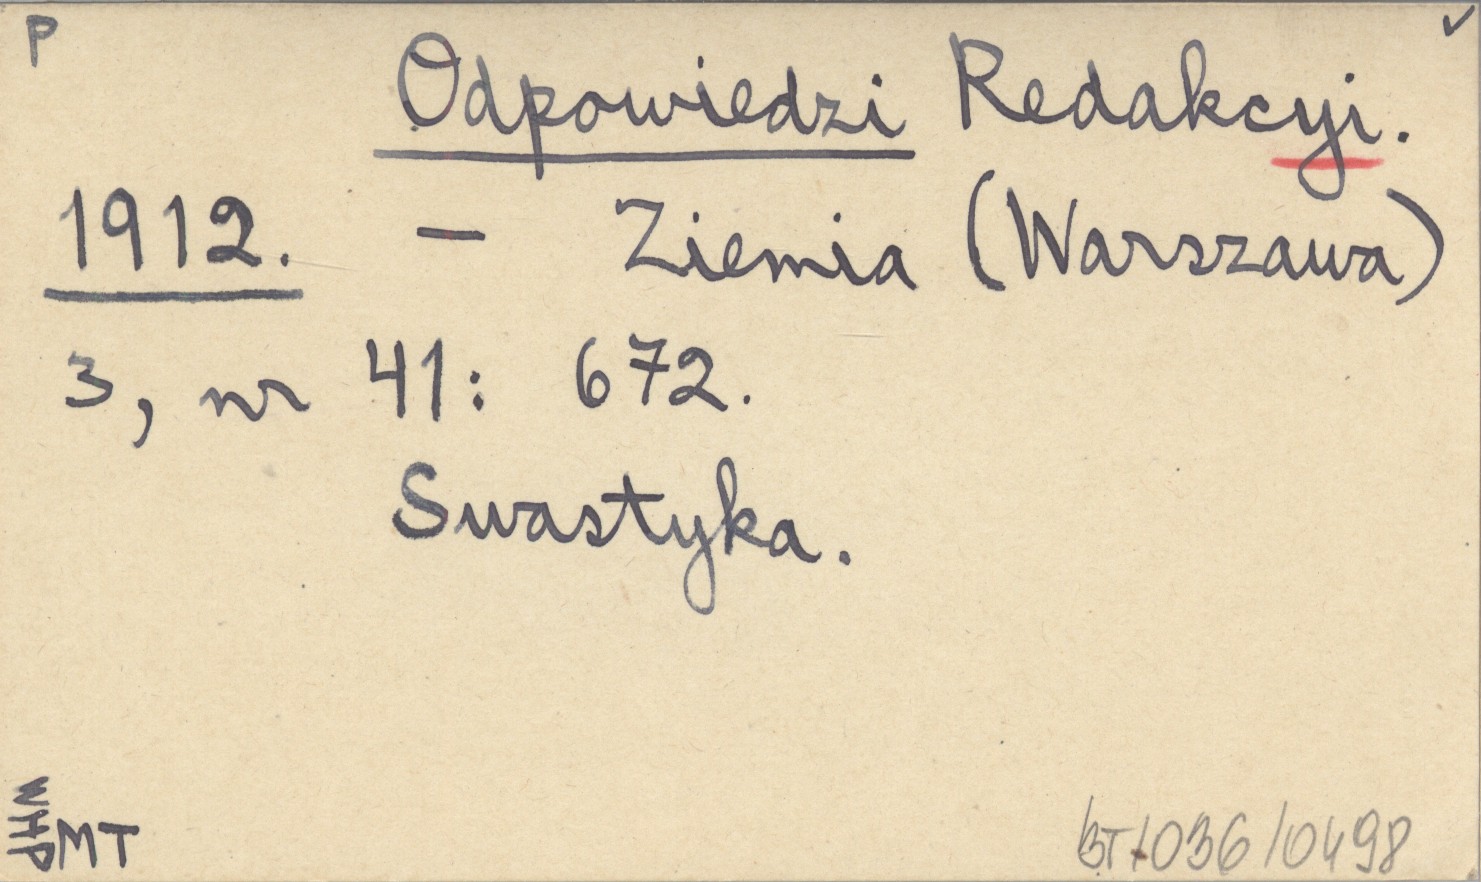 P
Odpowiedzi Redakcyi.
1912. — Ziemia (Warszawa)
3, nr 41: 672.
Swastyka.
WHP
MT
BT/036/0498